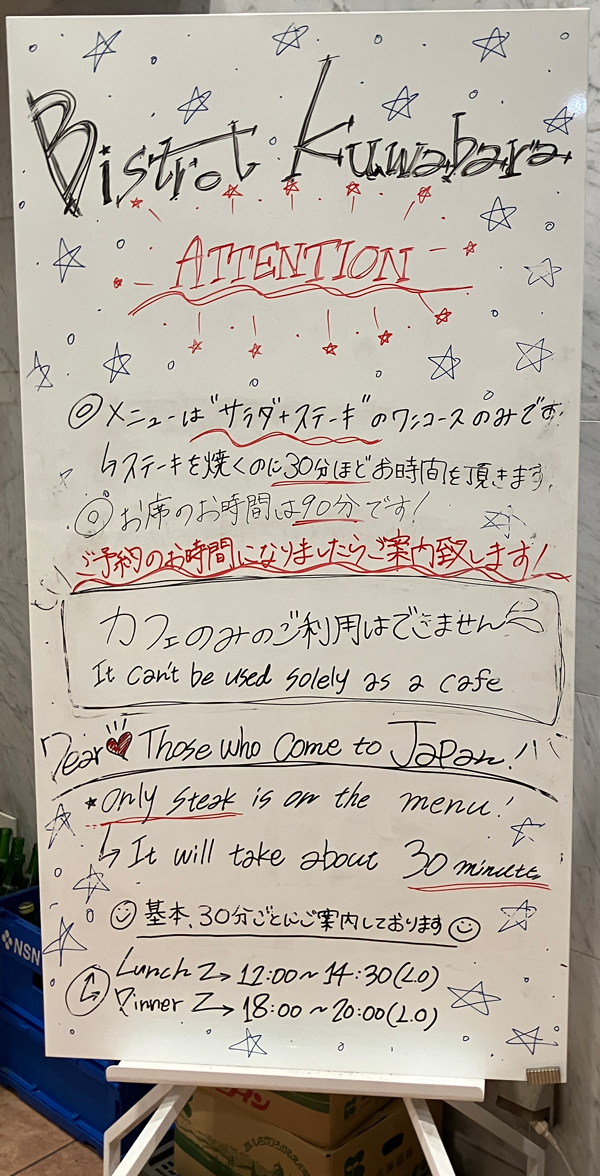 Bistrot Kuwabara
ATTENTION
◎メニューは"サラダ+ステーキ"のワンコースのみです。
↳ステーキを焼くのに30分ほどお時間を頂きます。
◎お席のお時間は90分です!
ご予約のお時間になりましたらご案内致します!
カフェのみのご利用はできません
It can't be used solely as a cafe
Dear♥Those who come to Japan!
★Only steak is on the menu!
↳It will take about 30 minute
基本、30分ごとにご案内しております
Lunch Z→12:00~14:30(L.O)
Dinner Z→18:00~20:00(L.O)
NSN